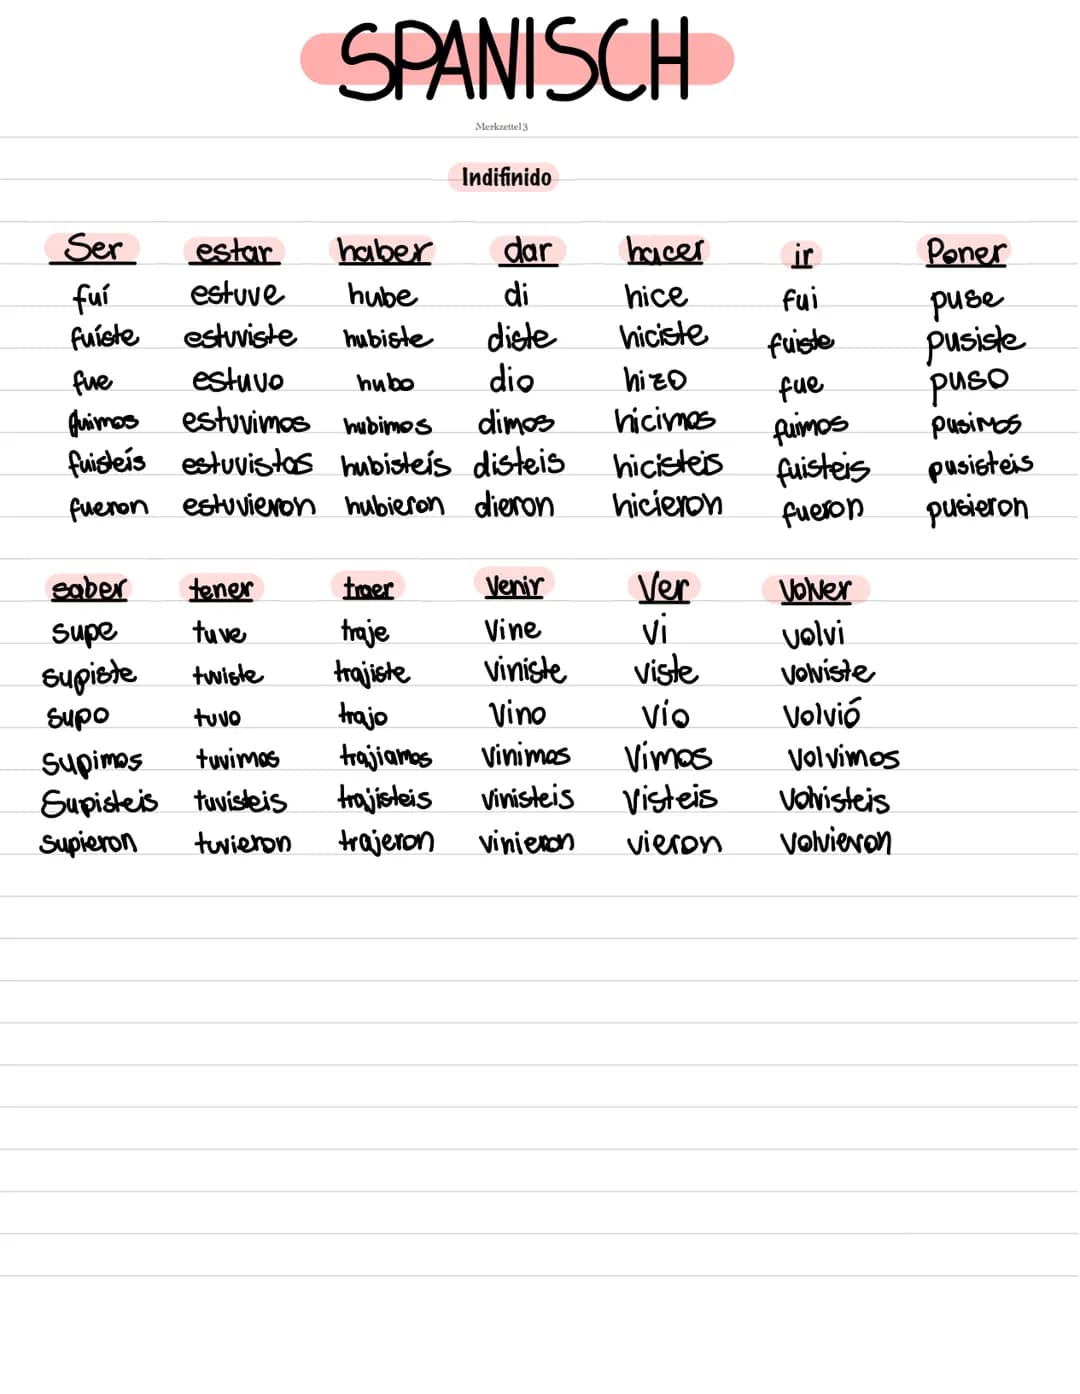 SPANISCH
Merkzettel 3
Indifinido
Ser estar haber dar hacer ir Poner
fuí estuve hube di hice fui puse
fuíste estuviste hubiste diste hiciste fuiste pusiste
fue estuvo hubo dio hizo fue puso
fuimos estuvimos hubimos dimos hicimos fuimos pusimos
fuisteís estuvistas hubisteís disteis hicisteis fuisteis pusisteis
fueron estuvieron hubieron dieron hicieron fueron pusieron
saber tener traer Venir Ver Volver
supe tuve traje Vine Vi volvi
supiste tuviste trajiste Viniste viste volviste
supo tuvo trajo Vino Vío Volvió
supimos tuvimos trajiamos Vinimos Vimos Volvimos
Supisteis tuvisteis trajisteis vinisteis Visteis Volvisteis
Supieron tuvieron trajeron vinieron vieron Volvieron